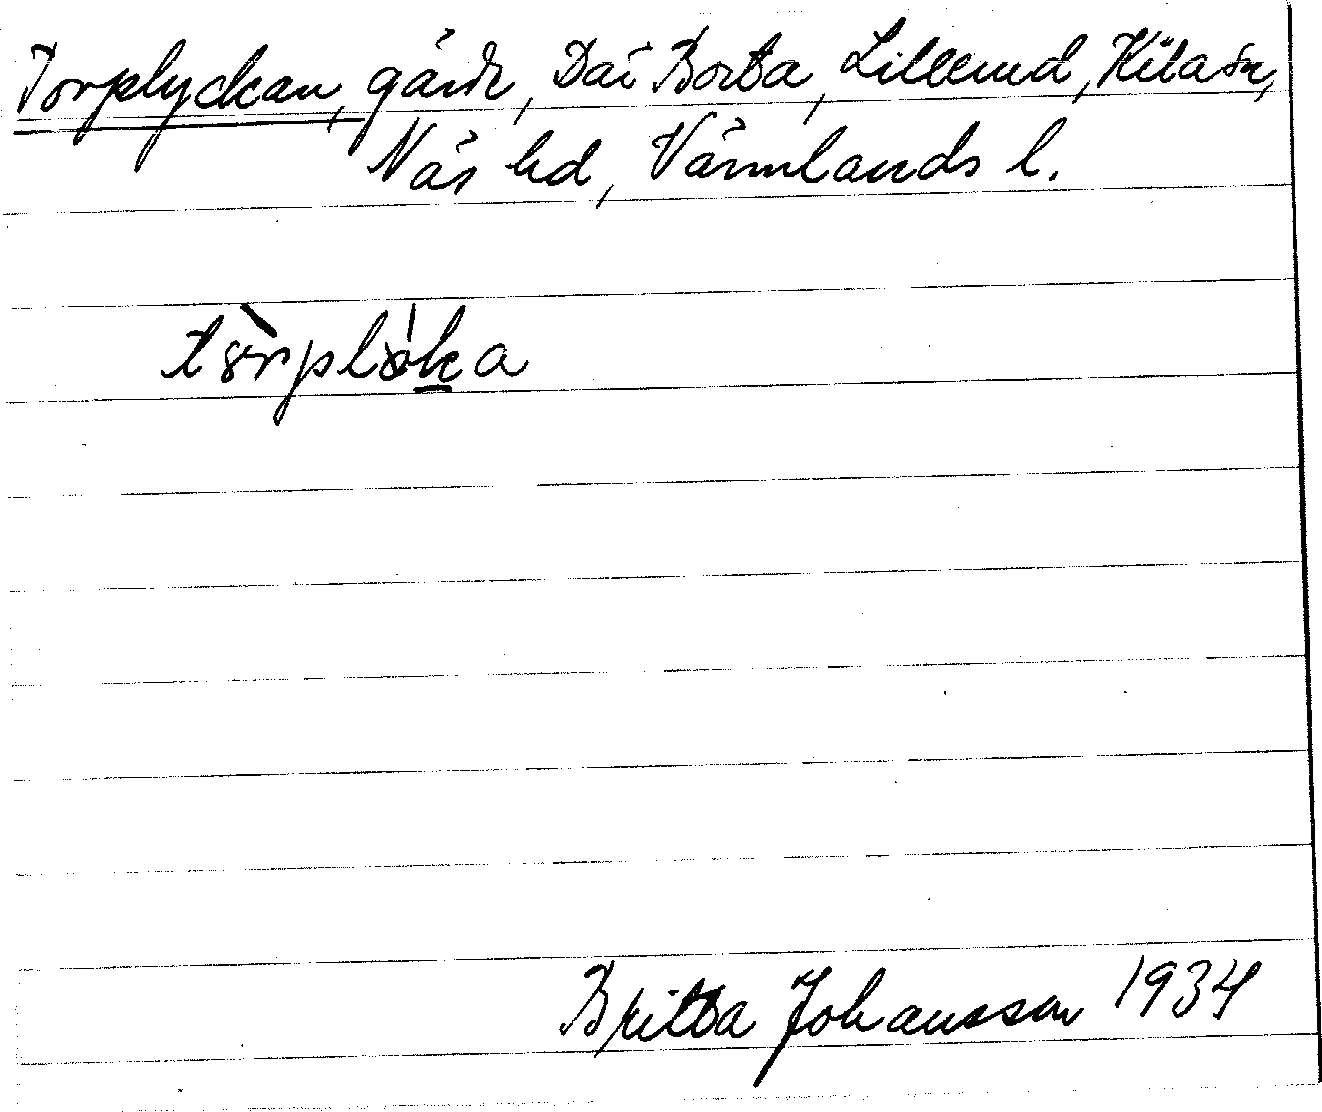 Torplyckan, gård, Där Borta, Lillerud, Kila sn,
Näs hd, Värmlands l.
tòrplòka
Britta Johansson 1934